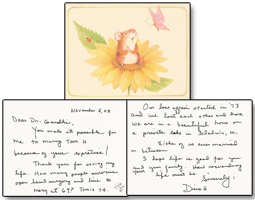 November 5, 03
Dear Dr. Gandhi,
You made it possible for
me to marry Tom H
because of your expertise!
Thank you for saving my
life. How many people overcome
open heart surgery and live to
marry at 67? Tom is 74.
Our love affair started in '73
and we lost each other and now
we are in a beautiful home on
a private lake in
Either of us ever married
in between.
I hope life is good for you
and your family. How rewarding
your life must be.
Sincerely,